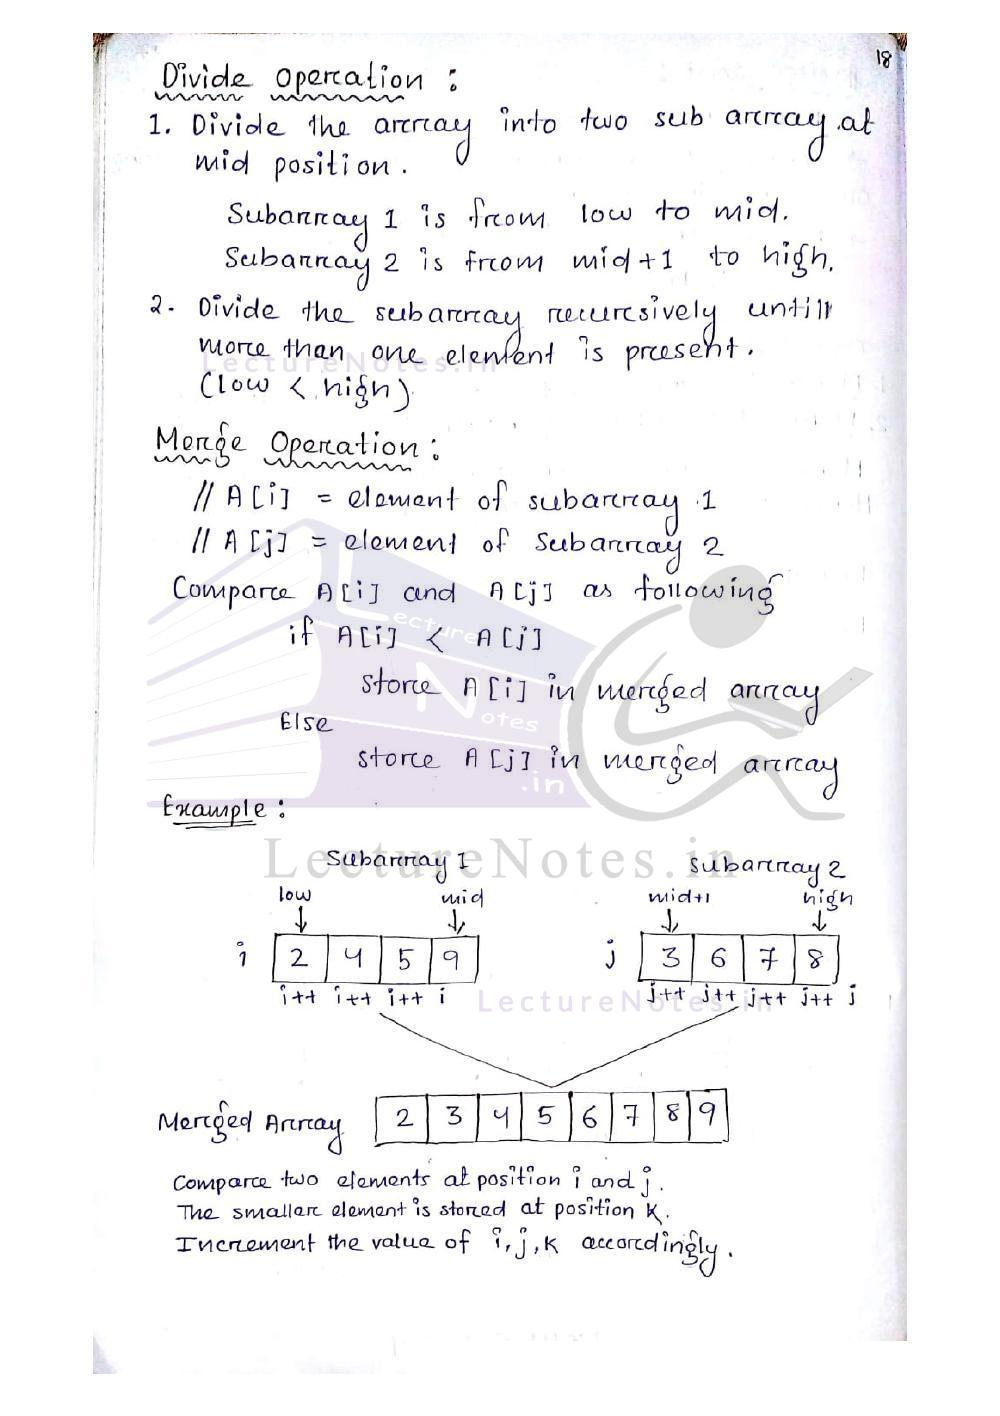 18
Divide Operation :
1. Divide the array into two sub array at
mid position.
Subarray 1 is from low to mid.
Subarray 2 is from mid+1 to high.
2. Divide the subarray recursively untill
more than one element is present.
LectureNotes.in
(low < high)
Merge Operation :
// A[i] = element of subarray 1
// A[j] = element of Subarray 2
Compare A[i] and A[j] as following
if A[i] < A[j]
Lecture
store A[i] in merged array
Notes
Else
store A[j] in merged array
.in
Example :
LectureNotes.in
Subarray 1 Subarray 2
low mid mid+1 high
i 2 4 5 9 j 3 6 7 8
i++ i++ i++ i j++ j++ j++ j++ j
LectureNotes.in
Merged Array 2 3 4 5 6 7 8 9
Compare two elements at position i and j.
The smaller element is stored at position K.
Increment the value of i, j, K accordingly.